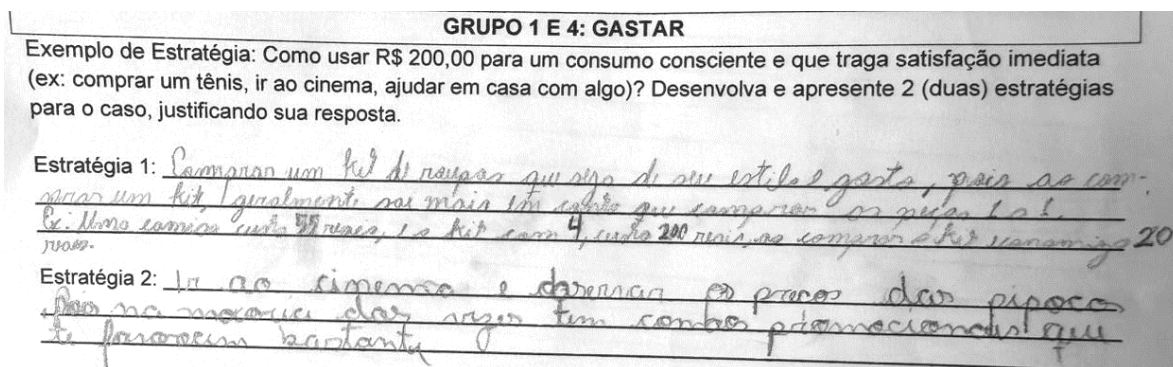 GRUPO 1 E 4: GASTAR
Exemplo de Estratégia: Como usar R$ 200,00 para um consumo consciente e que traga satisfação imediata
(ex: comprar um tênis, ir ao cinema, ajudar em casa com algo)? Desenvolva e apresente 2 (duas) estratégias
para o caso, justificando sua resposta.
Estratégia 1: Comprar um kit de roupas que seja de seu estilo e gosto, pois ao com-
prar um kit, geralmente sai mais em conta que comprar as peças 1 a 1.
Ex. Uma camisa custa 55 reais, e o kit com 4, custa 200 reais, ao comprar o kit economiza 20
reais.
Estratégia 2: Ir ao cinema e observar os preços das pipocas
Pois na maioria das vezes tem combos promocionais que
te favorecem bastante